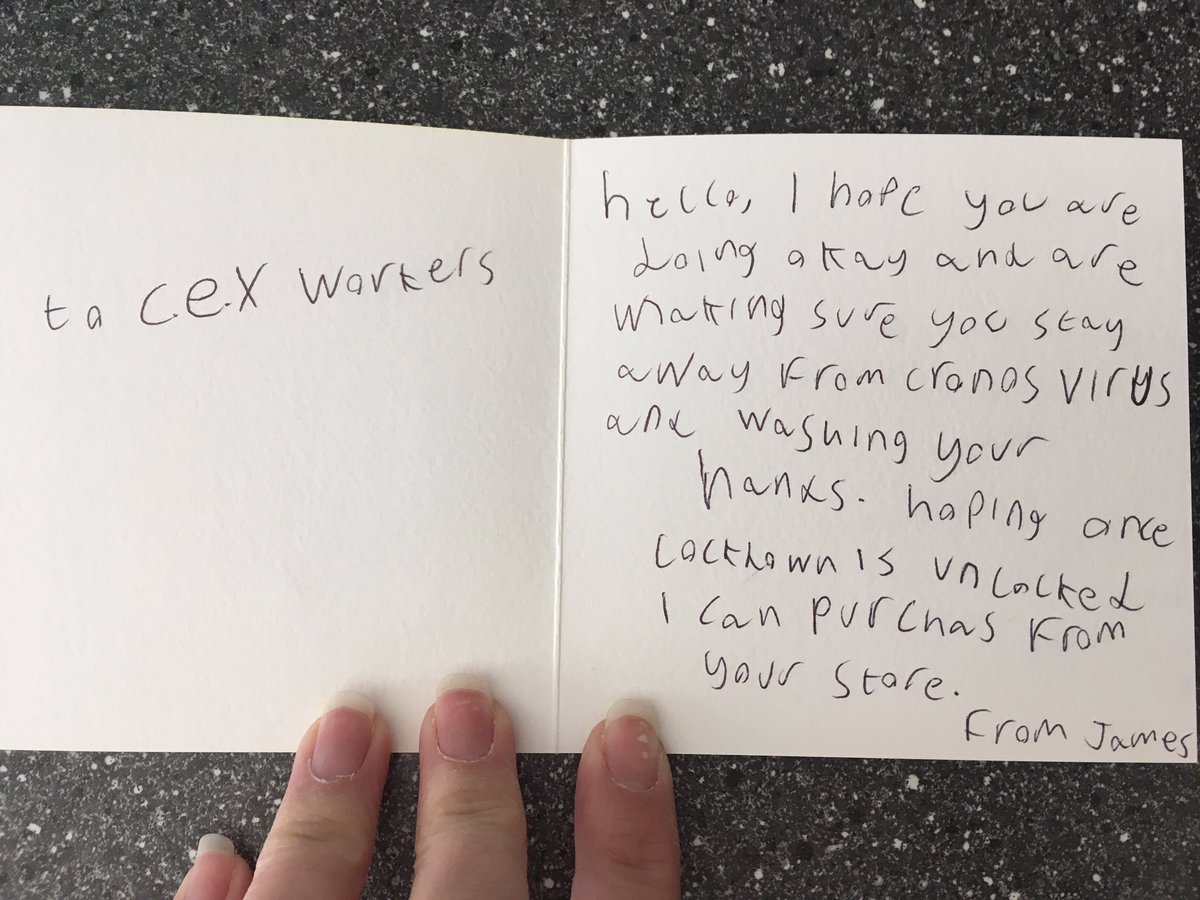 to C.e.X workers
hello, I hope you are
doing okay and are
making sure you stay
away from cronos virus
and washing your
hands. hoping once
lockdown is unlocked
I can purchas from
your store.
From James